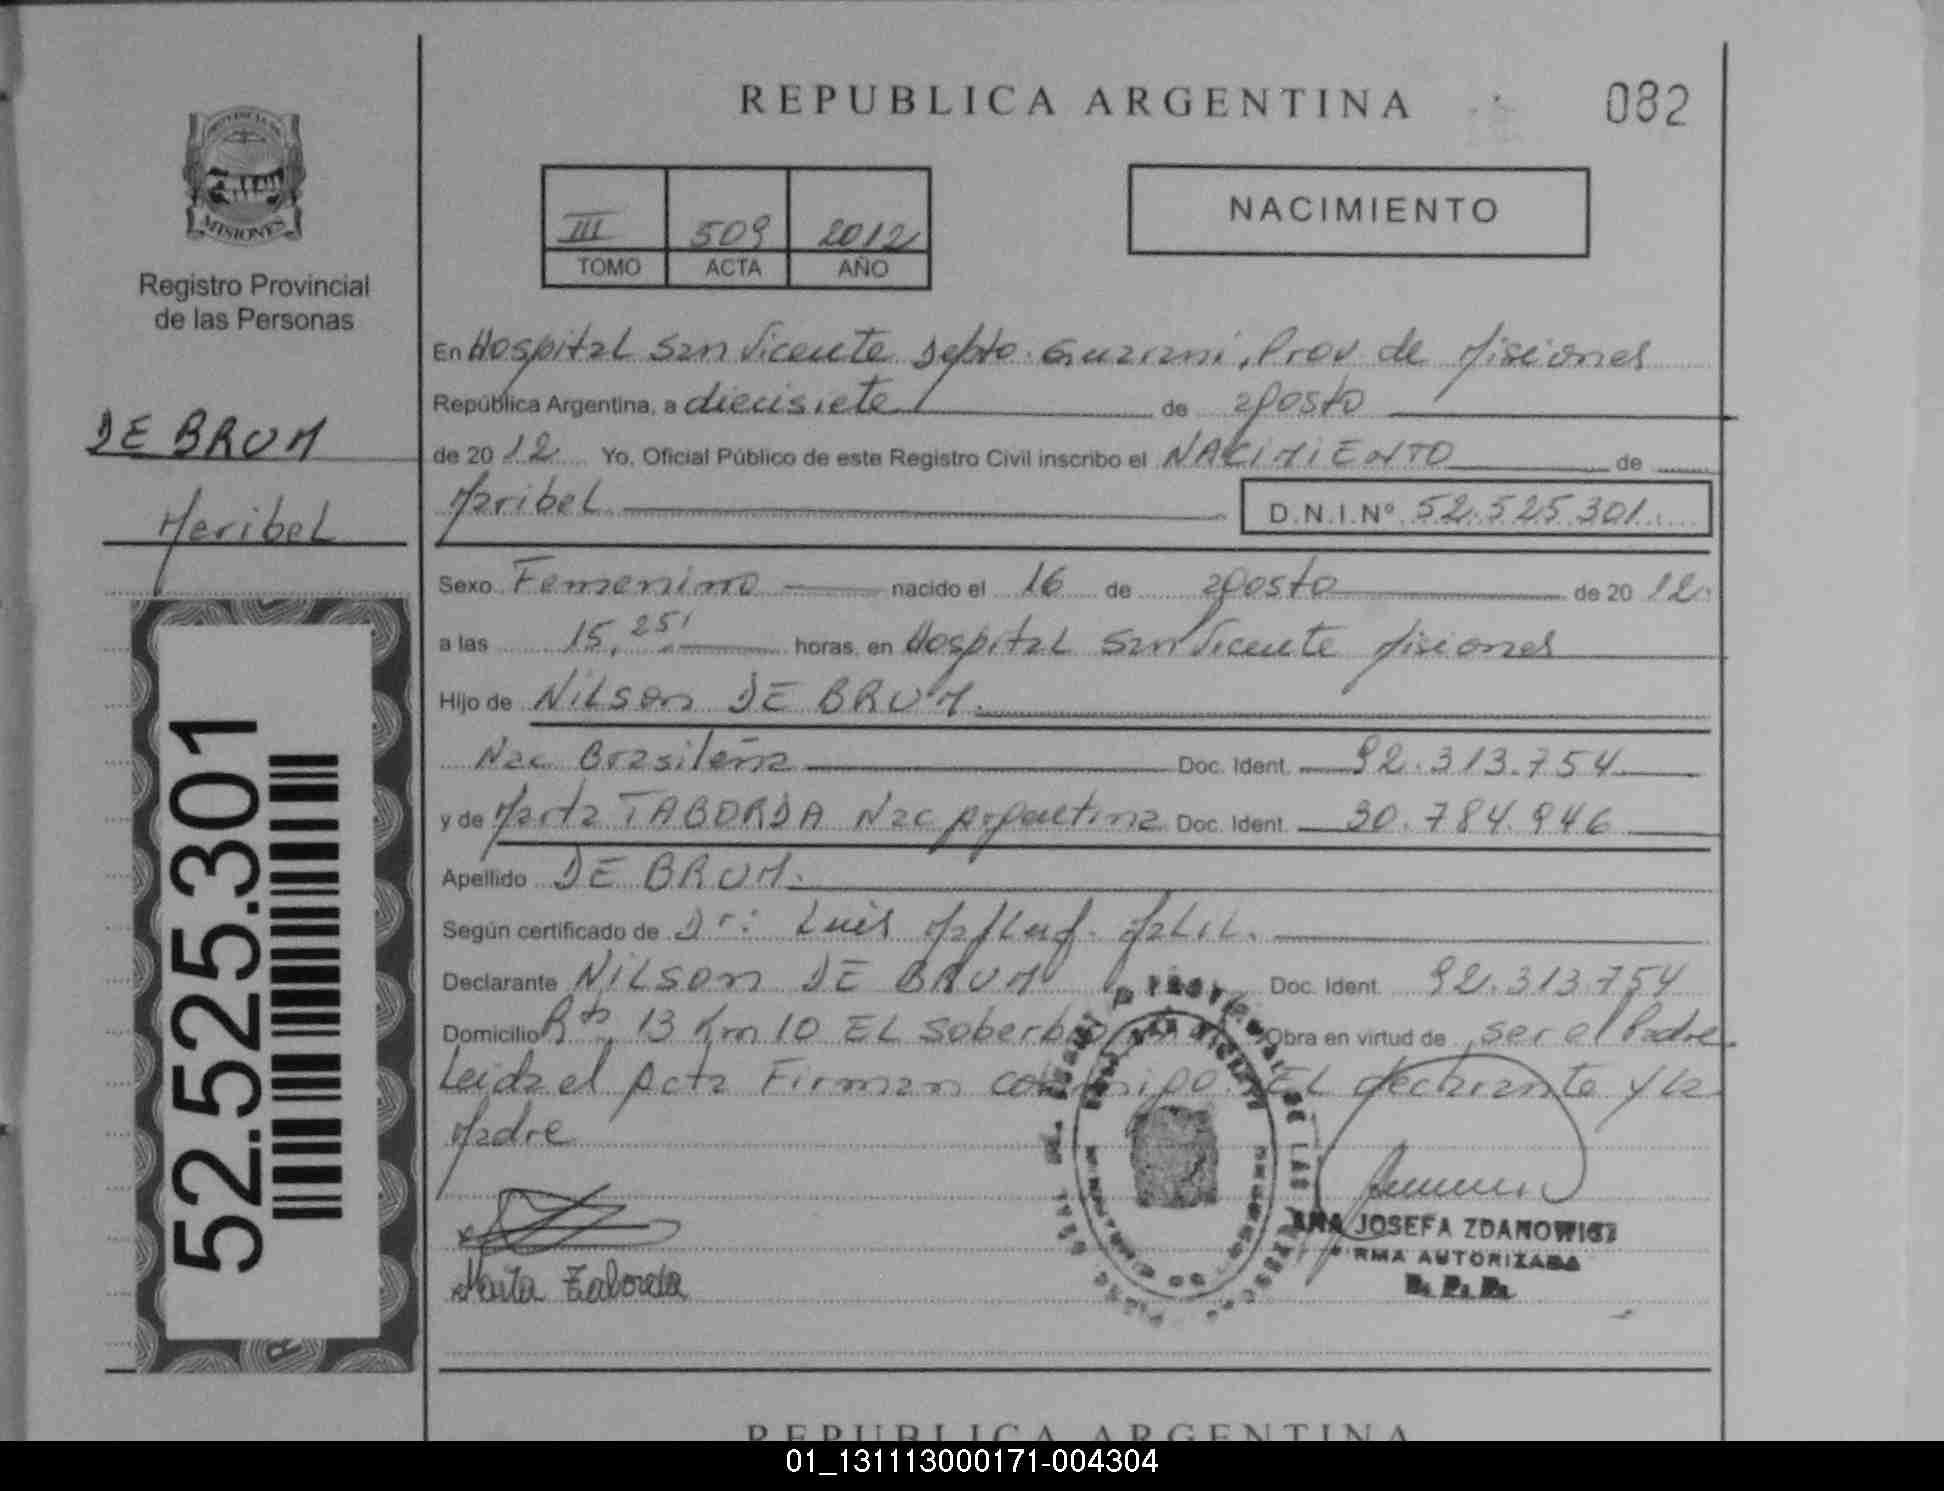 REPUBLICA ARGENTINA
082
PROVINCIA DE
MISIONES
Registro Provincial
de las Personas
III 509 2012
TOMO ACTA AÑO
NACIMIENTO
DE BRUM
Maribel
52.525.301
En Hospital San Vicente Dpto. Guarani, Prov de Misiones
República Argentina, a diecisiete de agosto
de 20 12 Yo, Oficial Público de este Registro Civil inscribo el NACIMIENTO de
Maribel D.N.I.Nº 52.525.301
Sexo Femenino nacido el 16 de agosto de 20 12.
a las 15,25' horas, en Hospital San Vicente Misiones
Hijo de Nilson DE BRUM.
Nac Brasileña Doc. Ident. 92.313.754
y de Marta TABORDA Nac Argentina Doc. Ident. 30.784.946
Apellido DE BRUM.
Según certificado de Dr: Luis
Declarante Nilson DE BRUM Doc. Ident. 92.313.754
Domicilio Rta 13 Km 10 EL Soberbio Obra en virtud de ser el Padre
Leida el Acta Firman conmigo EL declarante y La
Madre
Marta Taborda
ANA JOSEFA ZDANOWICZ
FIRMA AUTORIZADA
R. P. P.
REPUBLICA ARGENTINA
01_131113000171-004304